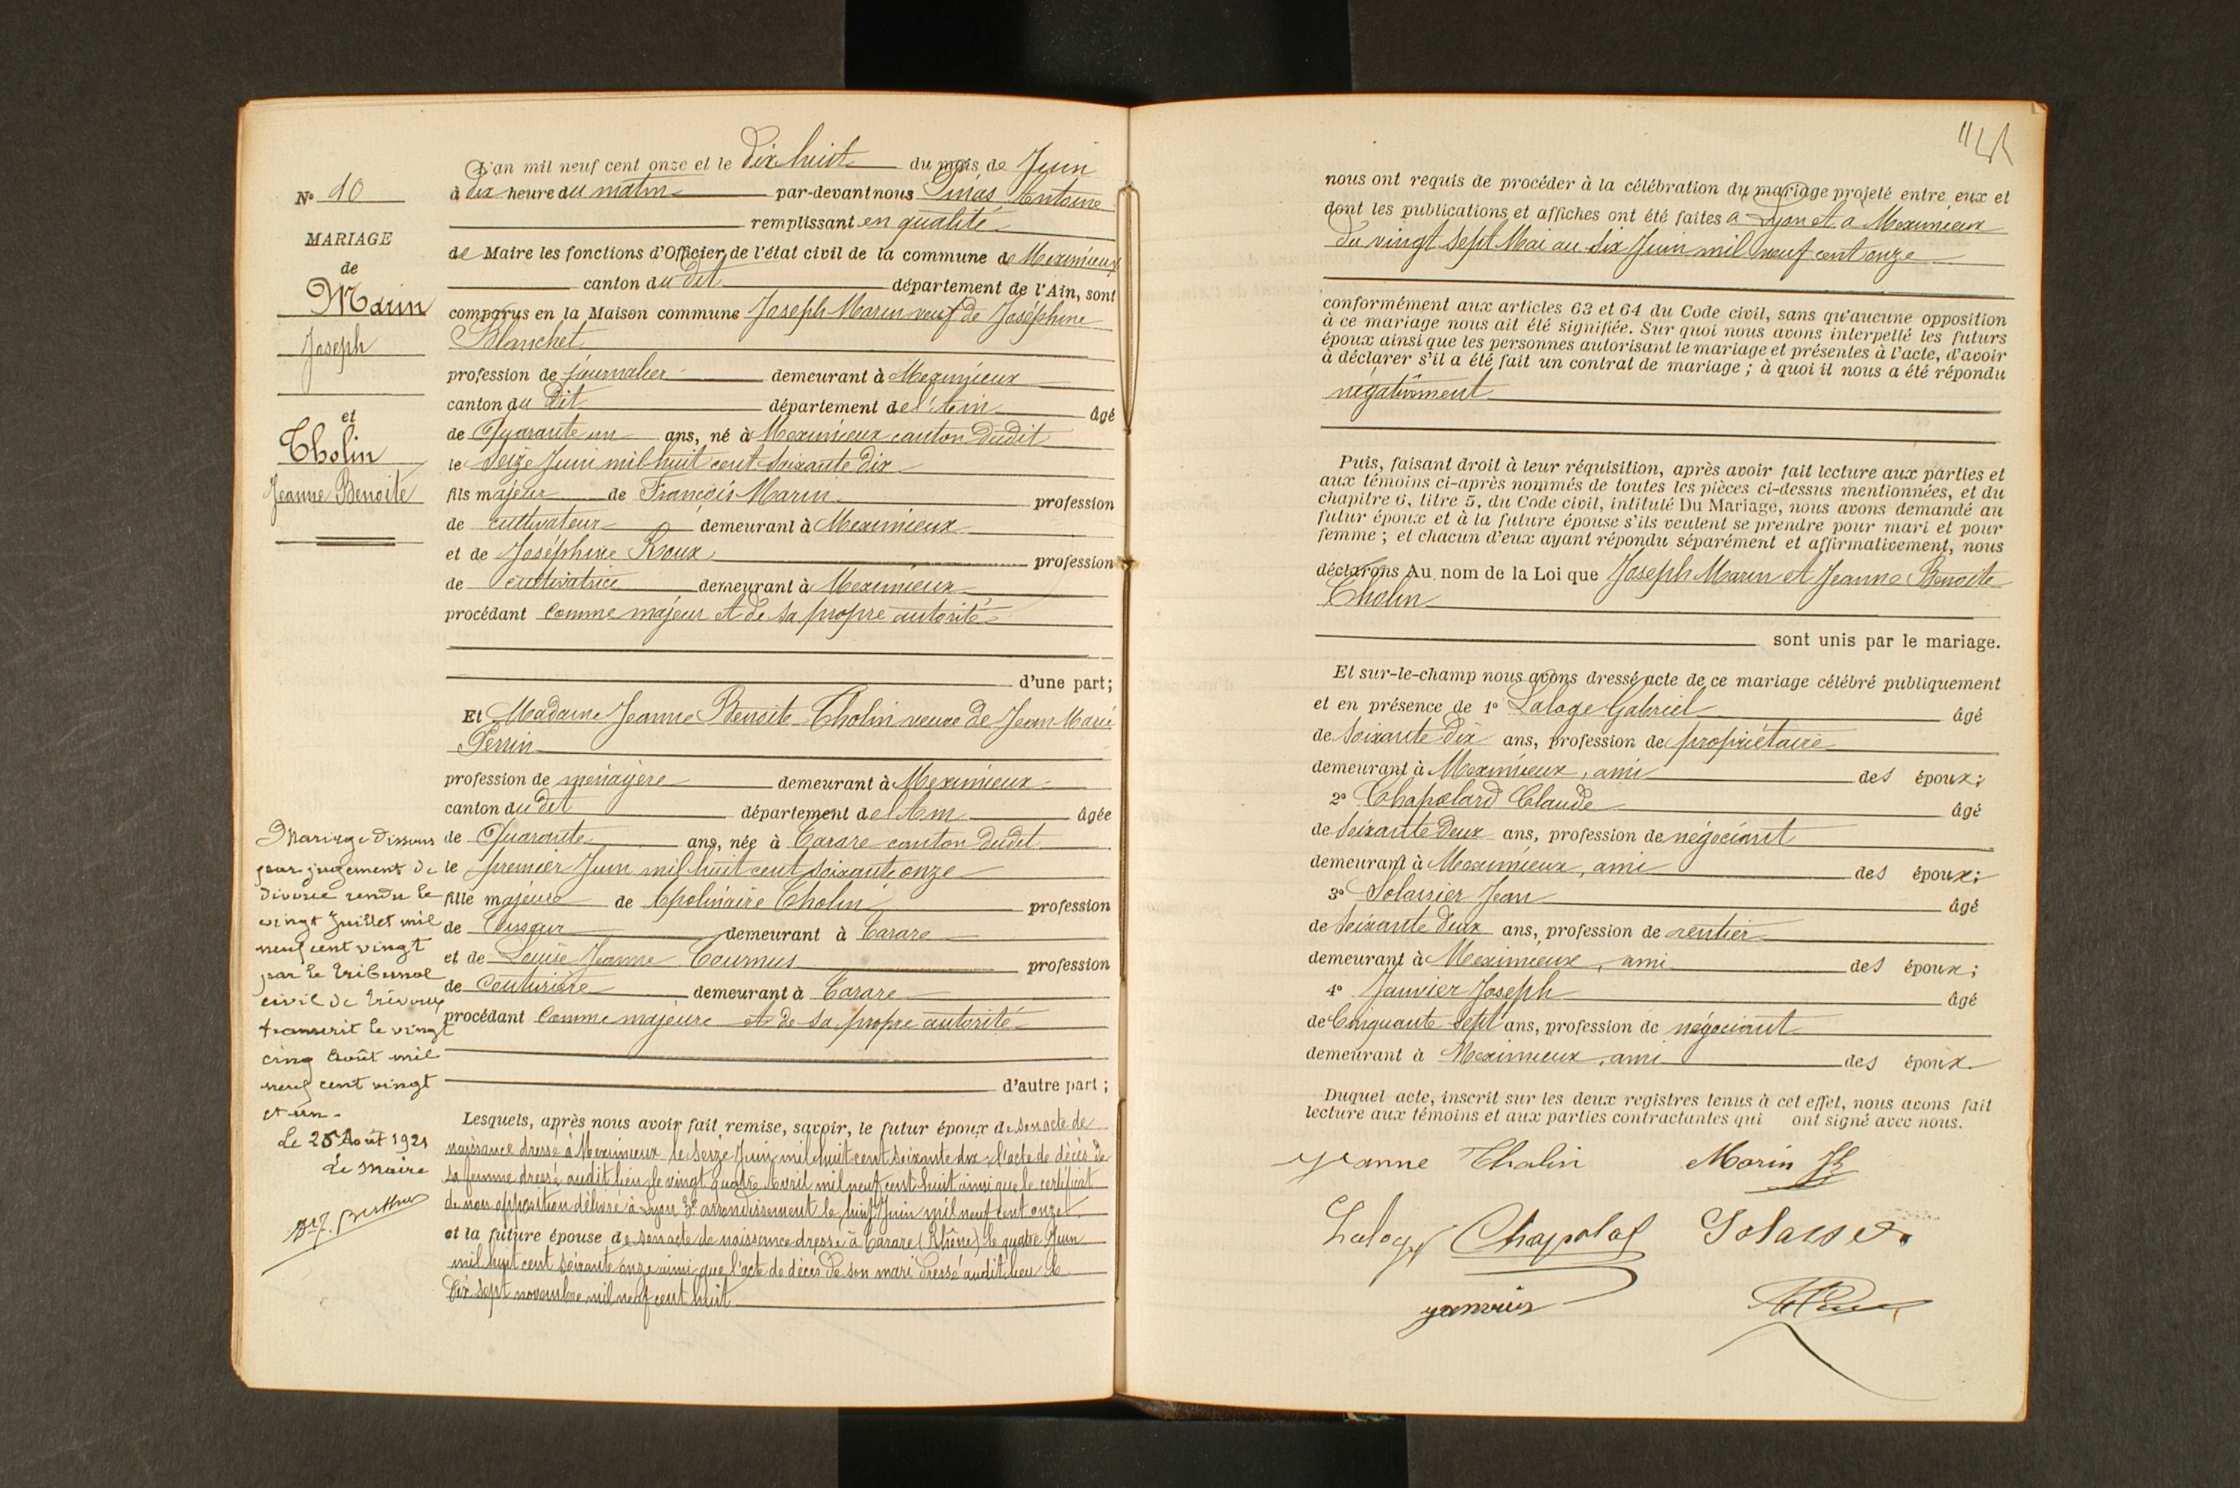 L'an mil neuf cent onze et le dix huit du mois de Juin
à dix heure du matin par-devant nous Antoine
remplissant en qualité
de Maire les fonctions d'Officier de l'état civil de la commune de Meximieux
canton du dit département de l'Ain, sont
comparus en la Maison commune Joseph Marin veuf de Joséphine
Blanchet
profession de journalier demeurant à Meximieux
canton du dit département de l'Ain âgé
de Quarante un ans, né à Meximieux canton dudit
le seize Juin mil huit cent soixante dix
fils majeur de François Marin profession
de cultivateur demeurant à Meximieux
et de Joséphine Roux profession
de cultivatrice demeurant à Meximieux
procédant comme majeur et de sa propre autorité
d'une part;
Et Madame Jeanne Benoite Tholin veuve de Jean Marie
Perrin
profession de ménagère demeurant à Meximieux
canton du dit département de l'Ain âgée
de Quarante ans, née à Tarare canton dudit
le premier Juin mil huit cent soixante onze
fille majeure de Apolinaire Tholin profession
de Tisseur demeurant à Tarare
et de Louise Jeanne Tournus profession
de Couturière demeurant à Tarare
procédant comme majeure et de sa propre autorité
d'autre part;
Lesquels, après nous avoir fait remise, savoir, le futur époux de son acte de
naissance dressé à Meximieux le seize Juin mil huit cent soixante dix l'acte de décès de
sa femme dressé audit lieu le vingt quatre Avril mil neuf cent huit ainsi que le certificat
de non opposition délivré à Lyon 3e arrondissement le huit Juin mil neuf cent onze
et la future épouse de son acte de naissance dressé à Tarare (Rhône) le quatre Juin
mil huit cent soixante onze ainsi que l'acte de décès de son mari dressé audit lieu le
dix sept novembre mil neuf cent huit
No 10
MARIAGE
de
Marin
Joseph
et
Tholin
Jeanne Benoite
Mariage dissous
par jugement de
divorce rendu le
vingt Juillet mil
neuf cent vingt
par le tribunal
civil de Trévoux
transcrit le vingt
cinq Août mil
neuf cent vingt
et un.
Le 25 Août 1921
Le Maire
nous ont requis de procéder à la célébration du mariage projeté entre eux et
dont les publications et affiches ont été faites à Lyon et à Meximieux
du vingt sept Mai au six Juin mil neuf cent onze
conformément aux articles 63 et 64 du Code civil, sans qu'aucune opposition
à ce mariage nous ait été signifiée. Sur quoi nous avons interpellé les futurs
époux ainsi que les personnes autorisant le mariage et présentes à l'acte, d'avoir
à déclarer s'il a été fait un contrat de mariage; à quoi il nous a été répondu
négativement
Puis, faisant droit à leur réquisition, après avoir fait lecture aux parties et
aux témoins ci-après nommés de toutes les pièces ci-dessus mentionnées, et du
chapitre 6, titre 5, du Code civil, intitulé Du Mariage, nous avons demandé au
futur époux et à la future épouse s'ils veulent se prendre pour mari et pour
femme; et chacun d'eux ayant répondu séparément et affirmativement, nous
déclarons Au nom de la Loi que Joseph Marin et Jeanne Benoite
Tholin
sont unis par le mariage.
Et sur-le-champ nous avons dressé acte de ce mariage célébré publiquement
et en présence de 1° Laloge Gabriel âgé
de soixante dix ans, profession de propriétaire
demeurant à Meximieux, ami des époux;
2° Chapolard Claude âgé
de soixante deux ans, profession de négociant
demeurant à Meximieux, ami des époux;
3° Solassier Jean âgé
de soixante deux ans, profession de rentier
demeurant à Meximieux, ami des époux;
4° Janvier Joseph âgé
de Cinquante sept ans, profession de négociant
demeurant à Meximieux, ami des époux
Duquel acte, inscrit sur les deux registres tenus à cet effet, nous avons fait
lecture aux témoins et aux parties contractantes qui ont signé avec nous.
Jeanne Tholin Marin
Laloge Chapolard
janvier